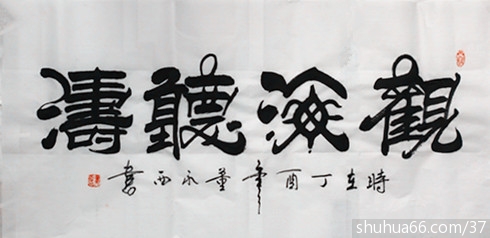 觀海聽濤
時在丁酉年董永西書
shuhua66.com/37